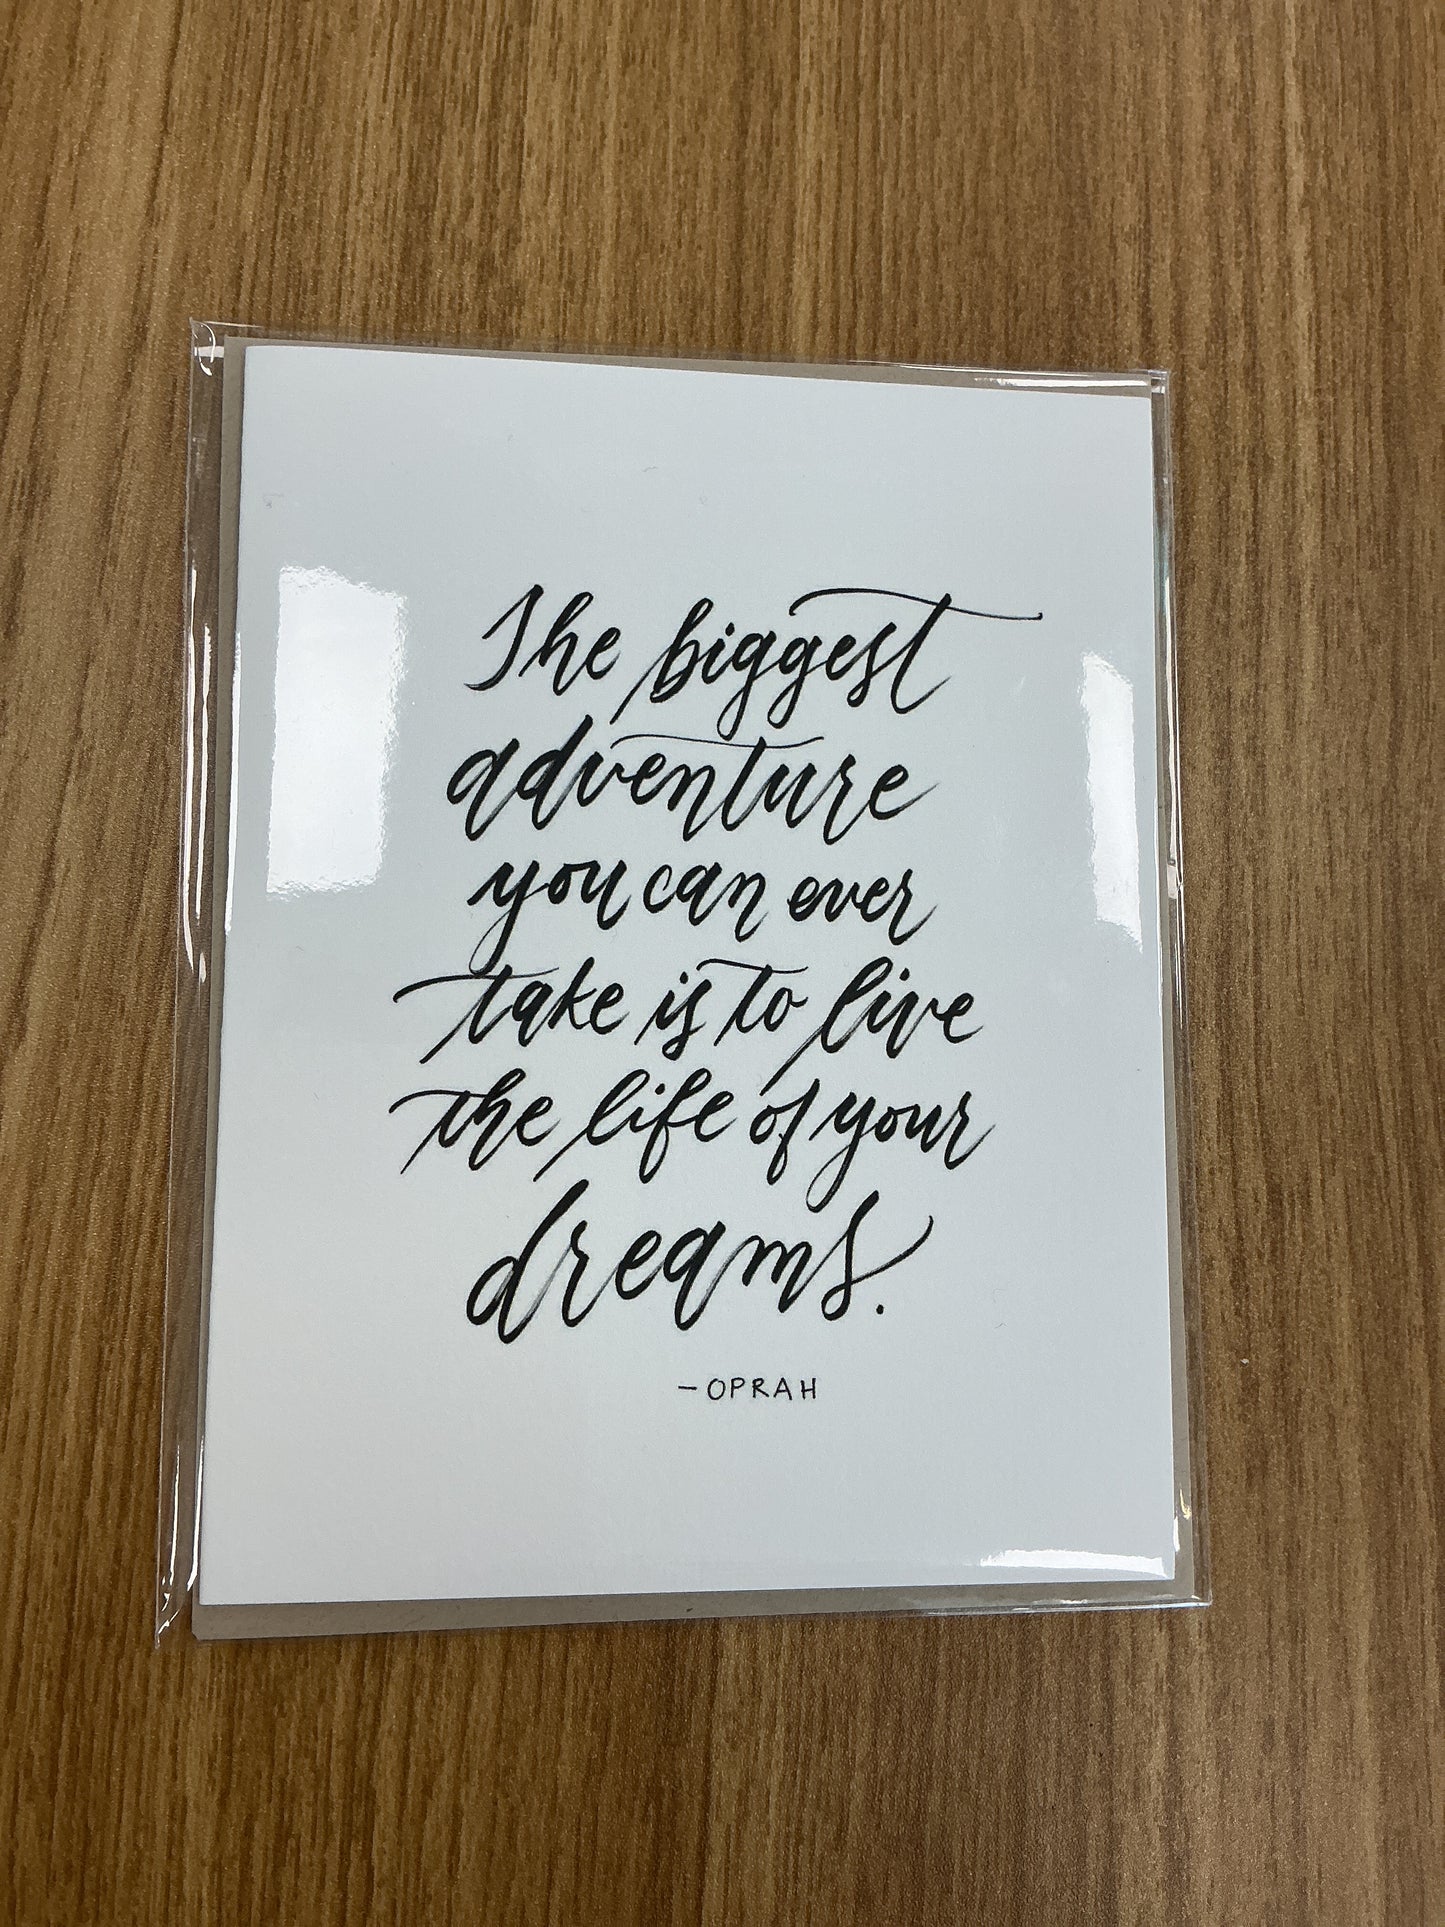 The biggest
adventure
you can ever
take is to live
the life of your
dreams.
-OPRAH